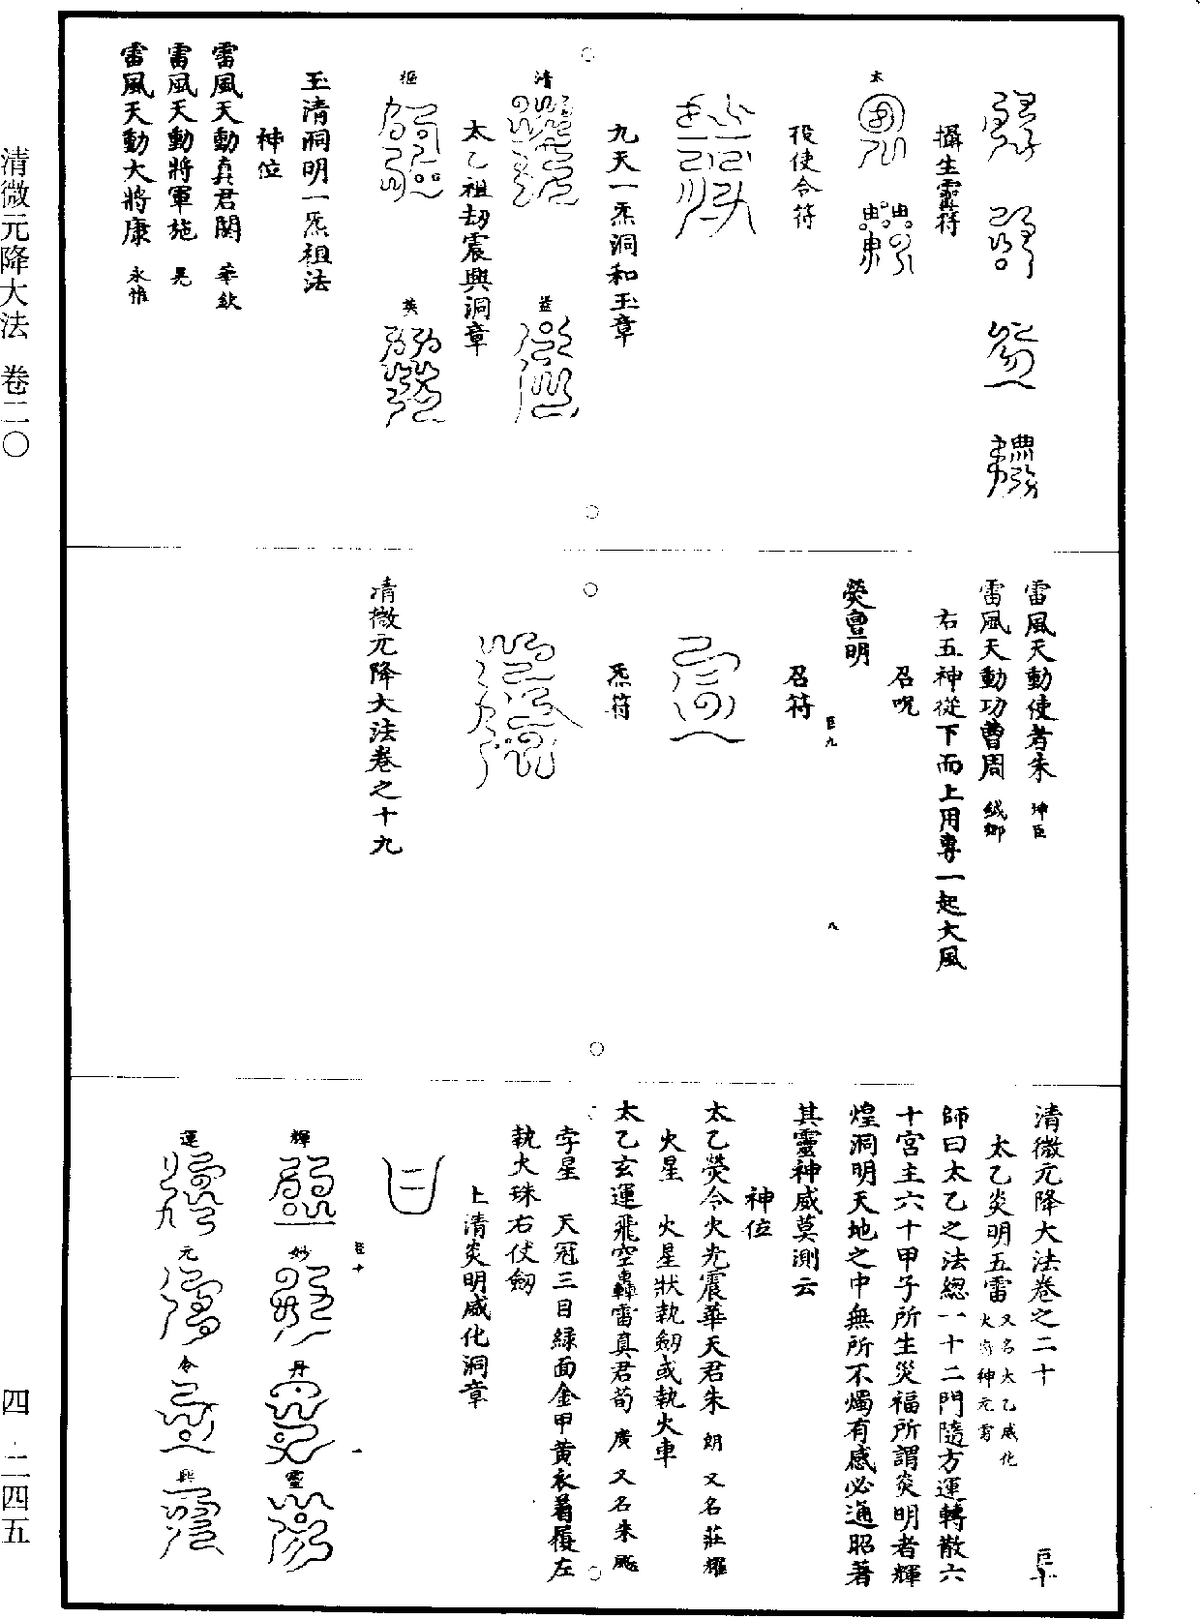 清微元降大法 卷二〇
攝生靈符
太
役使合符
九天一炁洞和玉章
清
益
太乙祖劫震興洞章
樞
英
玉清洞明一炁祖法
神位
雷風天動真君関 華欽
雷風天動將軍施 晃
雷風天動大將康 永惟
雷風天動使者朱 坤臣
雷風天動功曹周 紱卿
右五神從下而上用專一起大風
召呪
熒亶明
召符
巨九
八
炁符
清微元降大法卷之十九
清微元降大法卷之二十
巨十
太乙炎明五雷 又名太乙威化火
神元雷
師曰太乙之法總一十二門隨方運轉散六
十宮主六十甲子所生災福所謂炎明者輝
煌洞明天地之中無所不燭有感必通昭著
其靈神威莫測云
神位
太乙熒令火光震華天君朱 朗 又名莊耀
火星 火星狀執劒或執火車
太乙玄運飛空轟雷真君荀 廣 又名朱
孛星 天冠三目綠面金甲黃衣着履左
執火珠右仗劒
上清炎明威化洞章
巨十
一
輝
妙
丹
靈
運
元
令
興
四 二四五